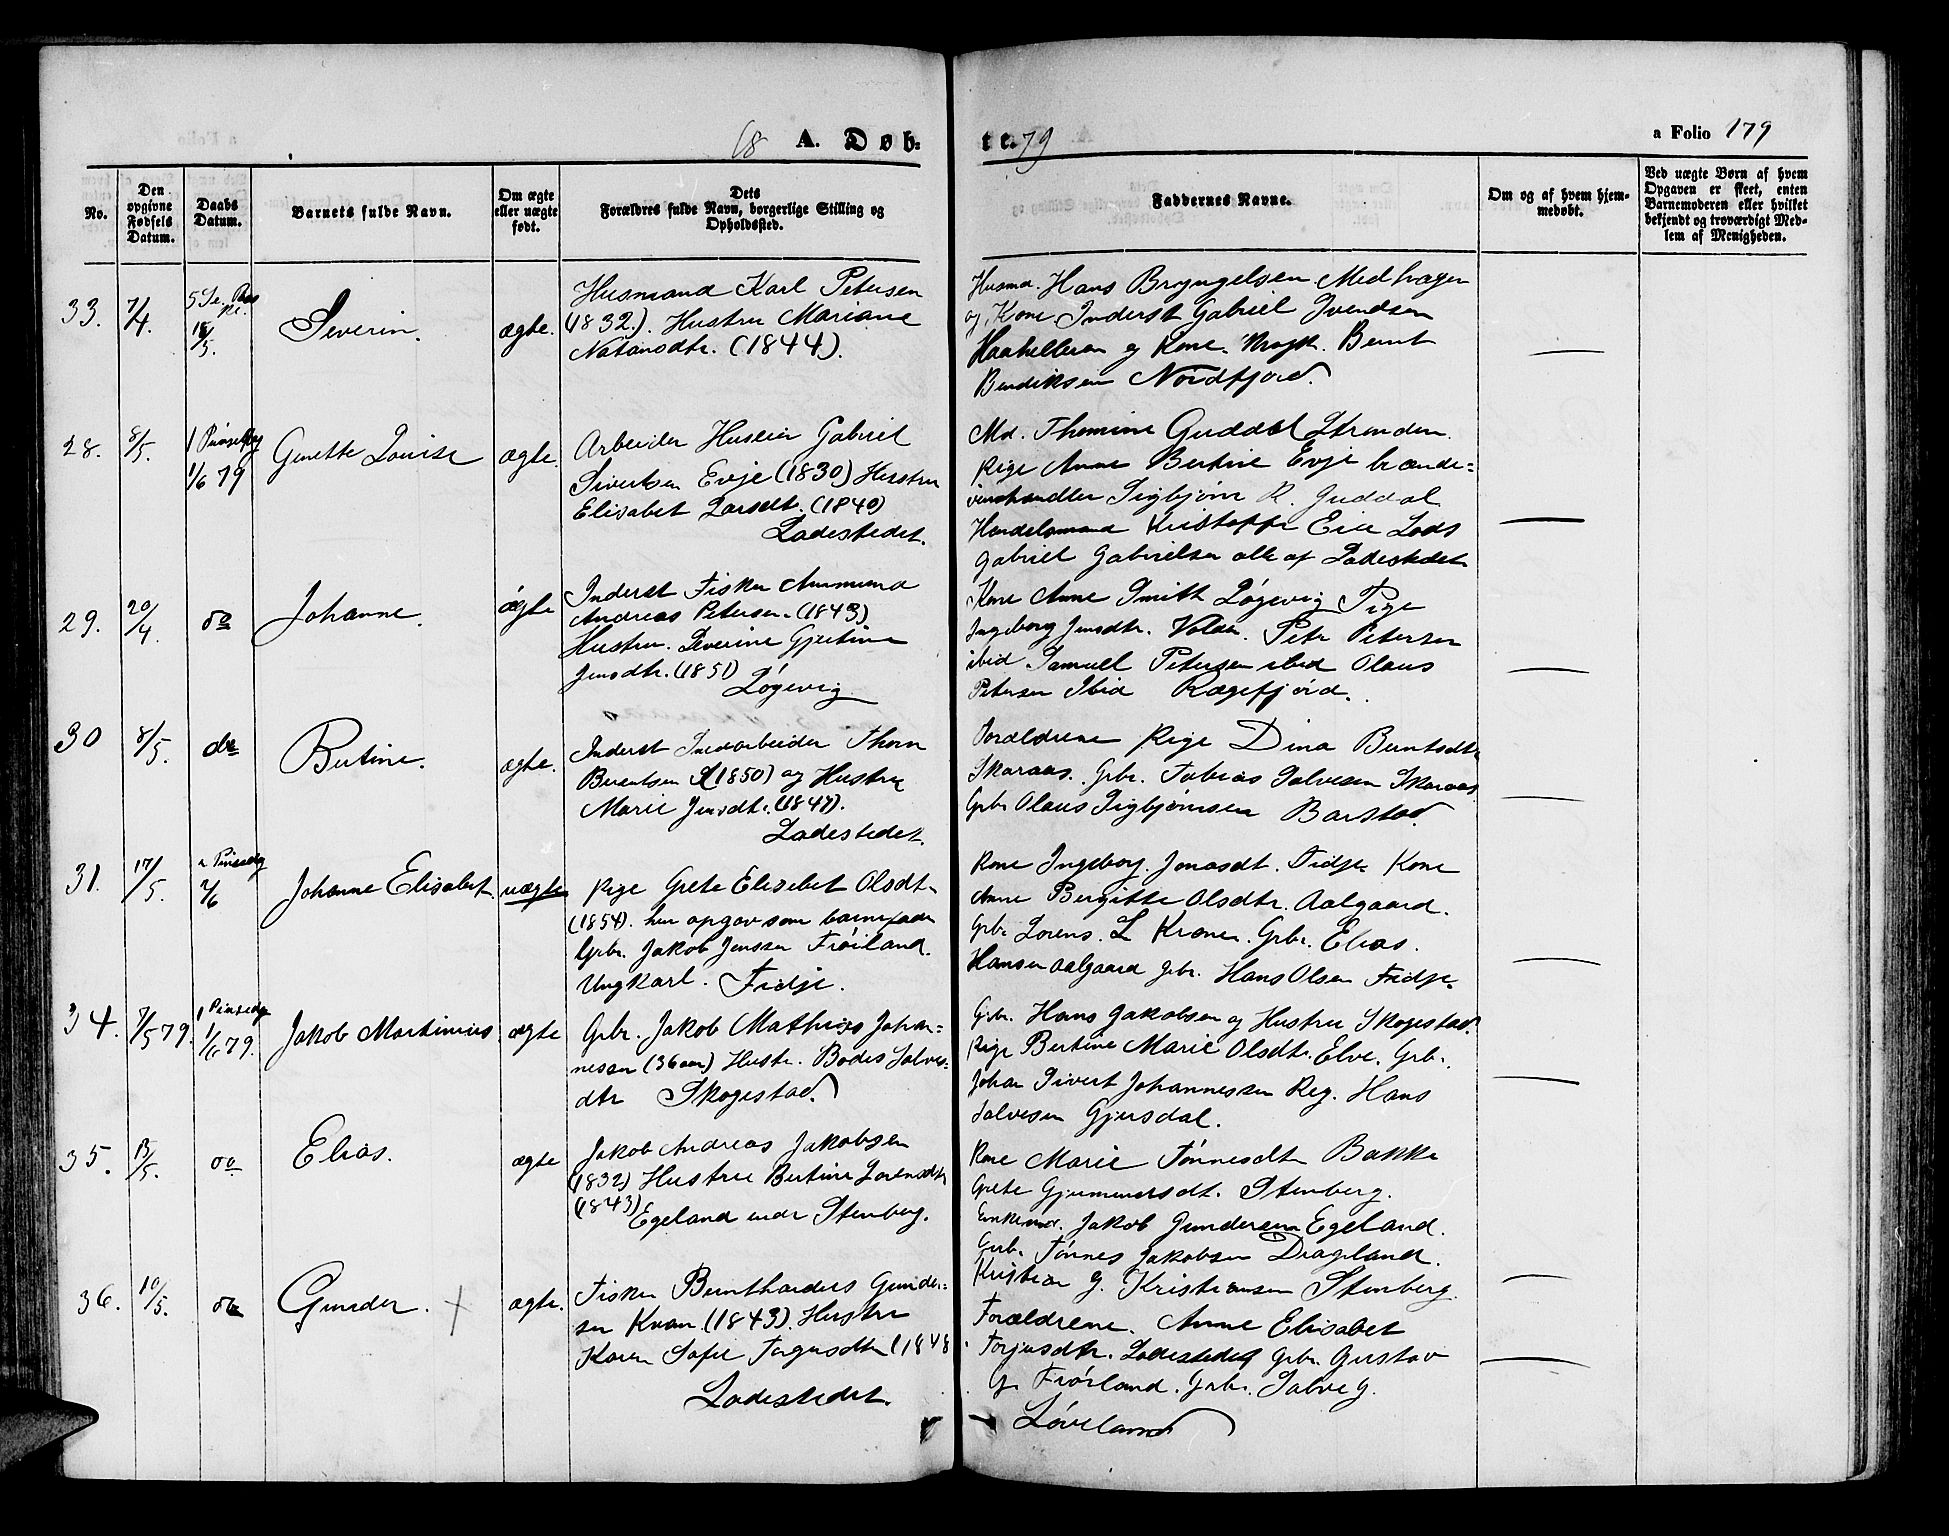 68 A. Døb-
tte. 79
a Folio 179
No.
Den opgivne Fødsels Datum.
Daabs Datum.
Barnets fulde Navn.
Om ægte eller uægte født.
Dets Forældres fulde Navn, borgerlige Stilling og Opholdssted.
Faddernes Navne.
Om og af hvem hjemmedøbt.
Ved uægte Børn af hvem Opgaven er skeet, enten Barnemoderen eller hvilket bekjendt og troværdigt Medlem af Menigheden.
33. 7/4. 18/5. Severin. ægte.
Husmand Karl Petersen
(1832). Hustru Mariane
Natansdtr. (1844).
Husmd. Hans Bryngelsen Medhaugen
og Kone Inderst Gabriel Svendsen
og Kone. Bernt
Bendiksen Nordfjord.
28. 8/5. 1 Pinsedag 1/6 79 Ginette Louise ægte.
Arbeider Huseier Gabriel
Sivertsen Evje (1830) Hustru
Elisabet Larsdt. (1840)
Ladestedet.
Md. Thomine Guddal Stranden.
Pige Anne Bertine Evje brænde=
vinshandler Sigbjørn R. Guddal
Handelsmand Kristoffer Eie Lods
Gabriel Gabrielsen alle af Ladestedet
29. 20/4. do Johanne. ægte
Inderst Fisker Ammund
Andreas Petersen. (1843)
Hustru. Severine Gjertine
Jensdtr. (1851)
Løgevig
Kone Anne Smith Løgevig Pige
Ingeborg Jensdtr. Petr Petersen
ibid Samuel Petersen ibid Olaus
Petersen Ibid Rægefjord.
30 8/5. do Bertine. ægte.
Inderst Thorn
Berentsen (1850) og Hustru
Marie Jensdtr. (1847).
Ladestedet.
Forældrene Pige Dina Berntsdtr
Skaraas. Grbr. Tobias Salvesen Skaraas
Grbr Olaus Sigbjørnsen Barstad.
31. 17/5. 2 Pinsedag 2/6 Johanne Elisabet. uægte
Pige Grete Elisebet Olsdtr
(1854). hun opgav som barnefader
Grbr. Jakob Jensen Frøiland.
Ungkarl. Fidje.
Kone Ingeborg Jonasdt. Fidje Kone
Anne Bergitte Olsdtr. Aalgaard.
Grbr Lorens. L Krone. Grbr. Elias.
Hansen Aalgaard Grbr. Hans Olsen Fidje.
34. 7/5 79. 1 Pinsedag 1/6 79. Jakob Martinius ægte
Grbr. Jakob Mathias Johan=
nesen (36 aar) Hustr. Bodis Salves=
dtr Skogestad.
Grbr. Hans Jakobsen og Hustru Skogestad.
Pige Bertine Marie Olsdtr. Elve. Grb.
Johan Sivert Johannessen Reg. Hans
Salvesen Gjersdal.
35. 13/5. do Elias. ægte
Jakob Andreas Jakobsen
(1832) Hustru Bertine Lorensdtr
(1843)
Egeland Stenberg.
Kone Marie Tønnesdtr Bakke
Grete Gjermundsdt. Stenberg.
Enkemd. Jakob Gundersen Egeland.
Grb. Tønnes Jakobsen Drageland.
Kristian G. Kristiansen Stenberg.
36. 10/5. do Gunder. + ægte.
Fisker Berntharders Gunder=
sen Kvan (1843). Hustru
Karen Sofie Torgersdtr (1848
Ladestedet.
Forældrene. Anne Elisabet
Torjusdtr. Ladestedet Grbr. Gustav
G. Frøiland. Grbr. Salve G.
Løveland